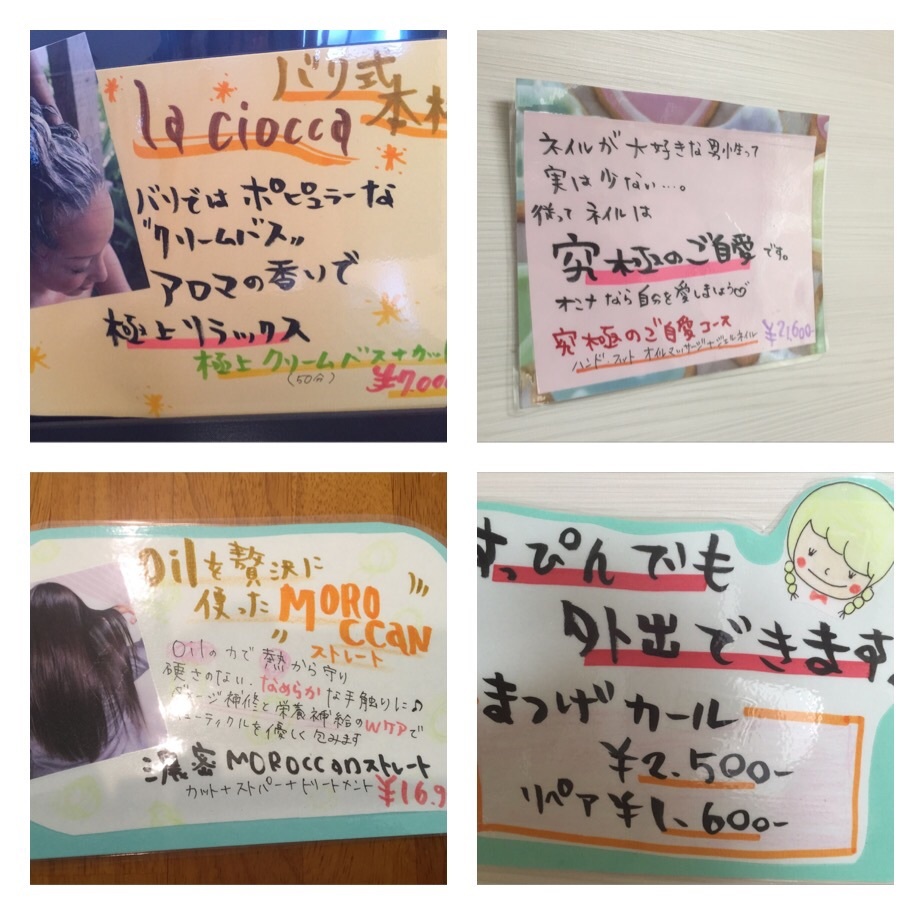 バリ式
本
la ciocca
バリでは ポピュラーな
"クリームバス"
アロマの香りで
極上リラックス
極上 クリームバス+カッ
(50分)
¥7,00
ネイルが 大好きな男性って
実は 少ない…。
従って ネイルは
究極のご自愛です。
オンナなら自分を愛しましょう♡
究極のご自愛コース ¥21,600-
ハンド・フット オイルマッサージ+ジェルネイル
Oilを贅沢に
使った "MORO
CCAN"
ストレート
Oilの力で 熱から守り
硬さのない、なめらかな手触りに♪
ダメージ補修と栄養補給のWケアで
キューティクルを優しく包みます
濃密MOROCCANストレート
カット+ストパー+トリートメント ¥16.9
すっぴんでも
外出できます。
まつげカール
¥2.500-
リペア ¥1.600-